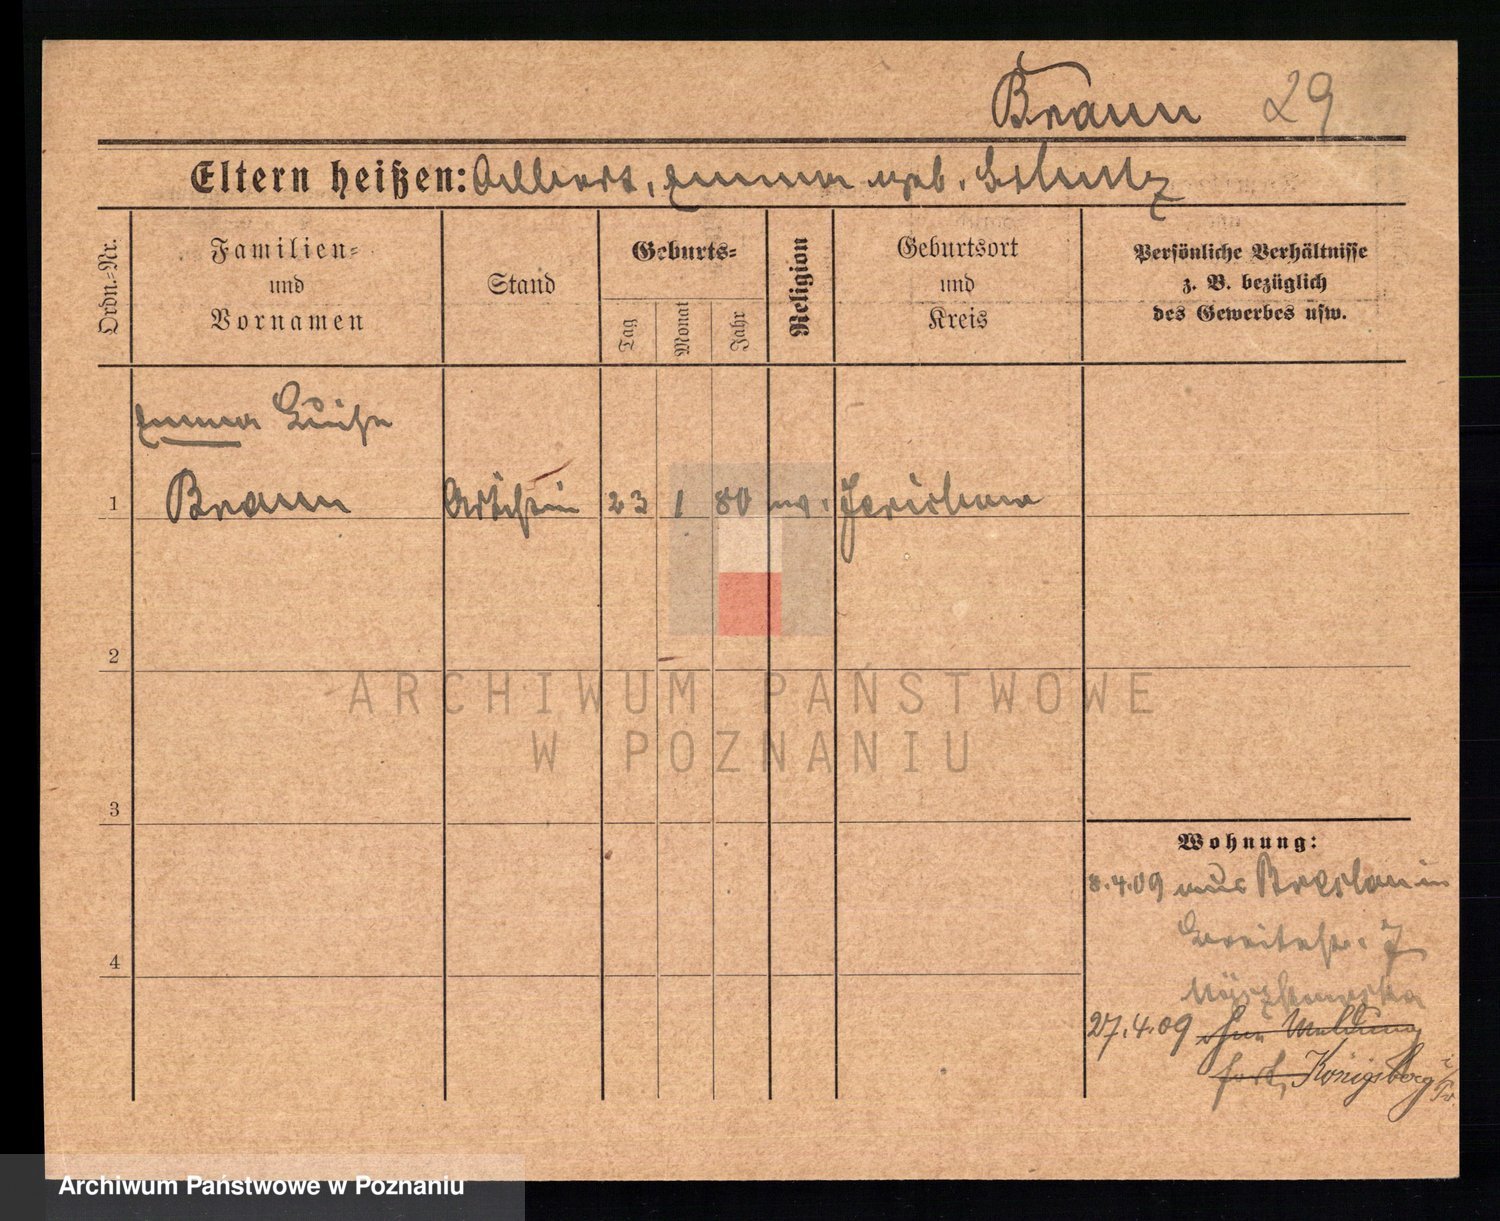 Braun 29
Eltern heißen: Albert, Emma geb. Schulz
Ordn.-Nr.
Familien-
und
Vornamen
Stand
Geburts-
Tag
Monat
Jahr
Religion
Geburtsort
und
Kreis
Persönliche Verhältnisse
z. B. bezüglich
des Gewerbes usw.
Emma Luise
1 Braun Artistin 23 1 80 ev. Jerichow
2
ARCHIWUM PAŃSTWOWE
W POZNANIU
3
Wohnung:
8.4.09 aus Breslau in
Breitestr. 7
4
27.4.09 ohne Meldung
fort, Königsberg i/Pr.
Archiwum Państwowe w Poznaniu